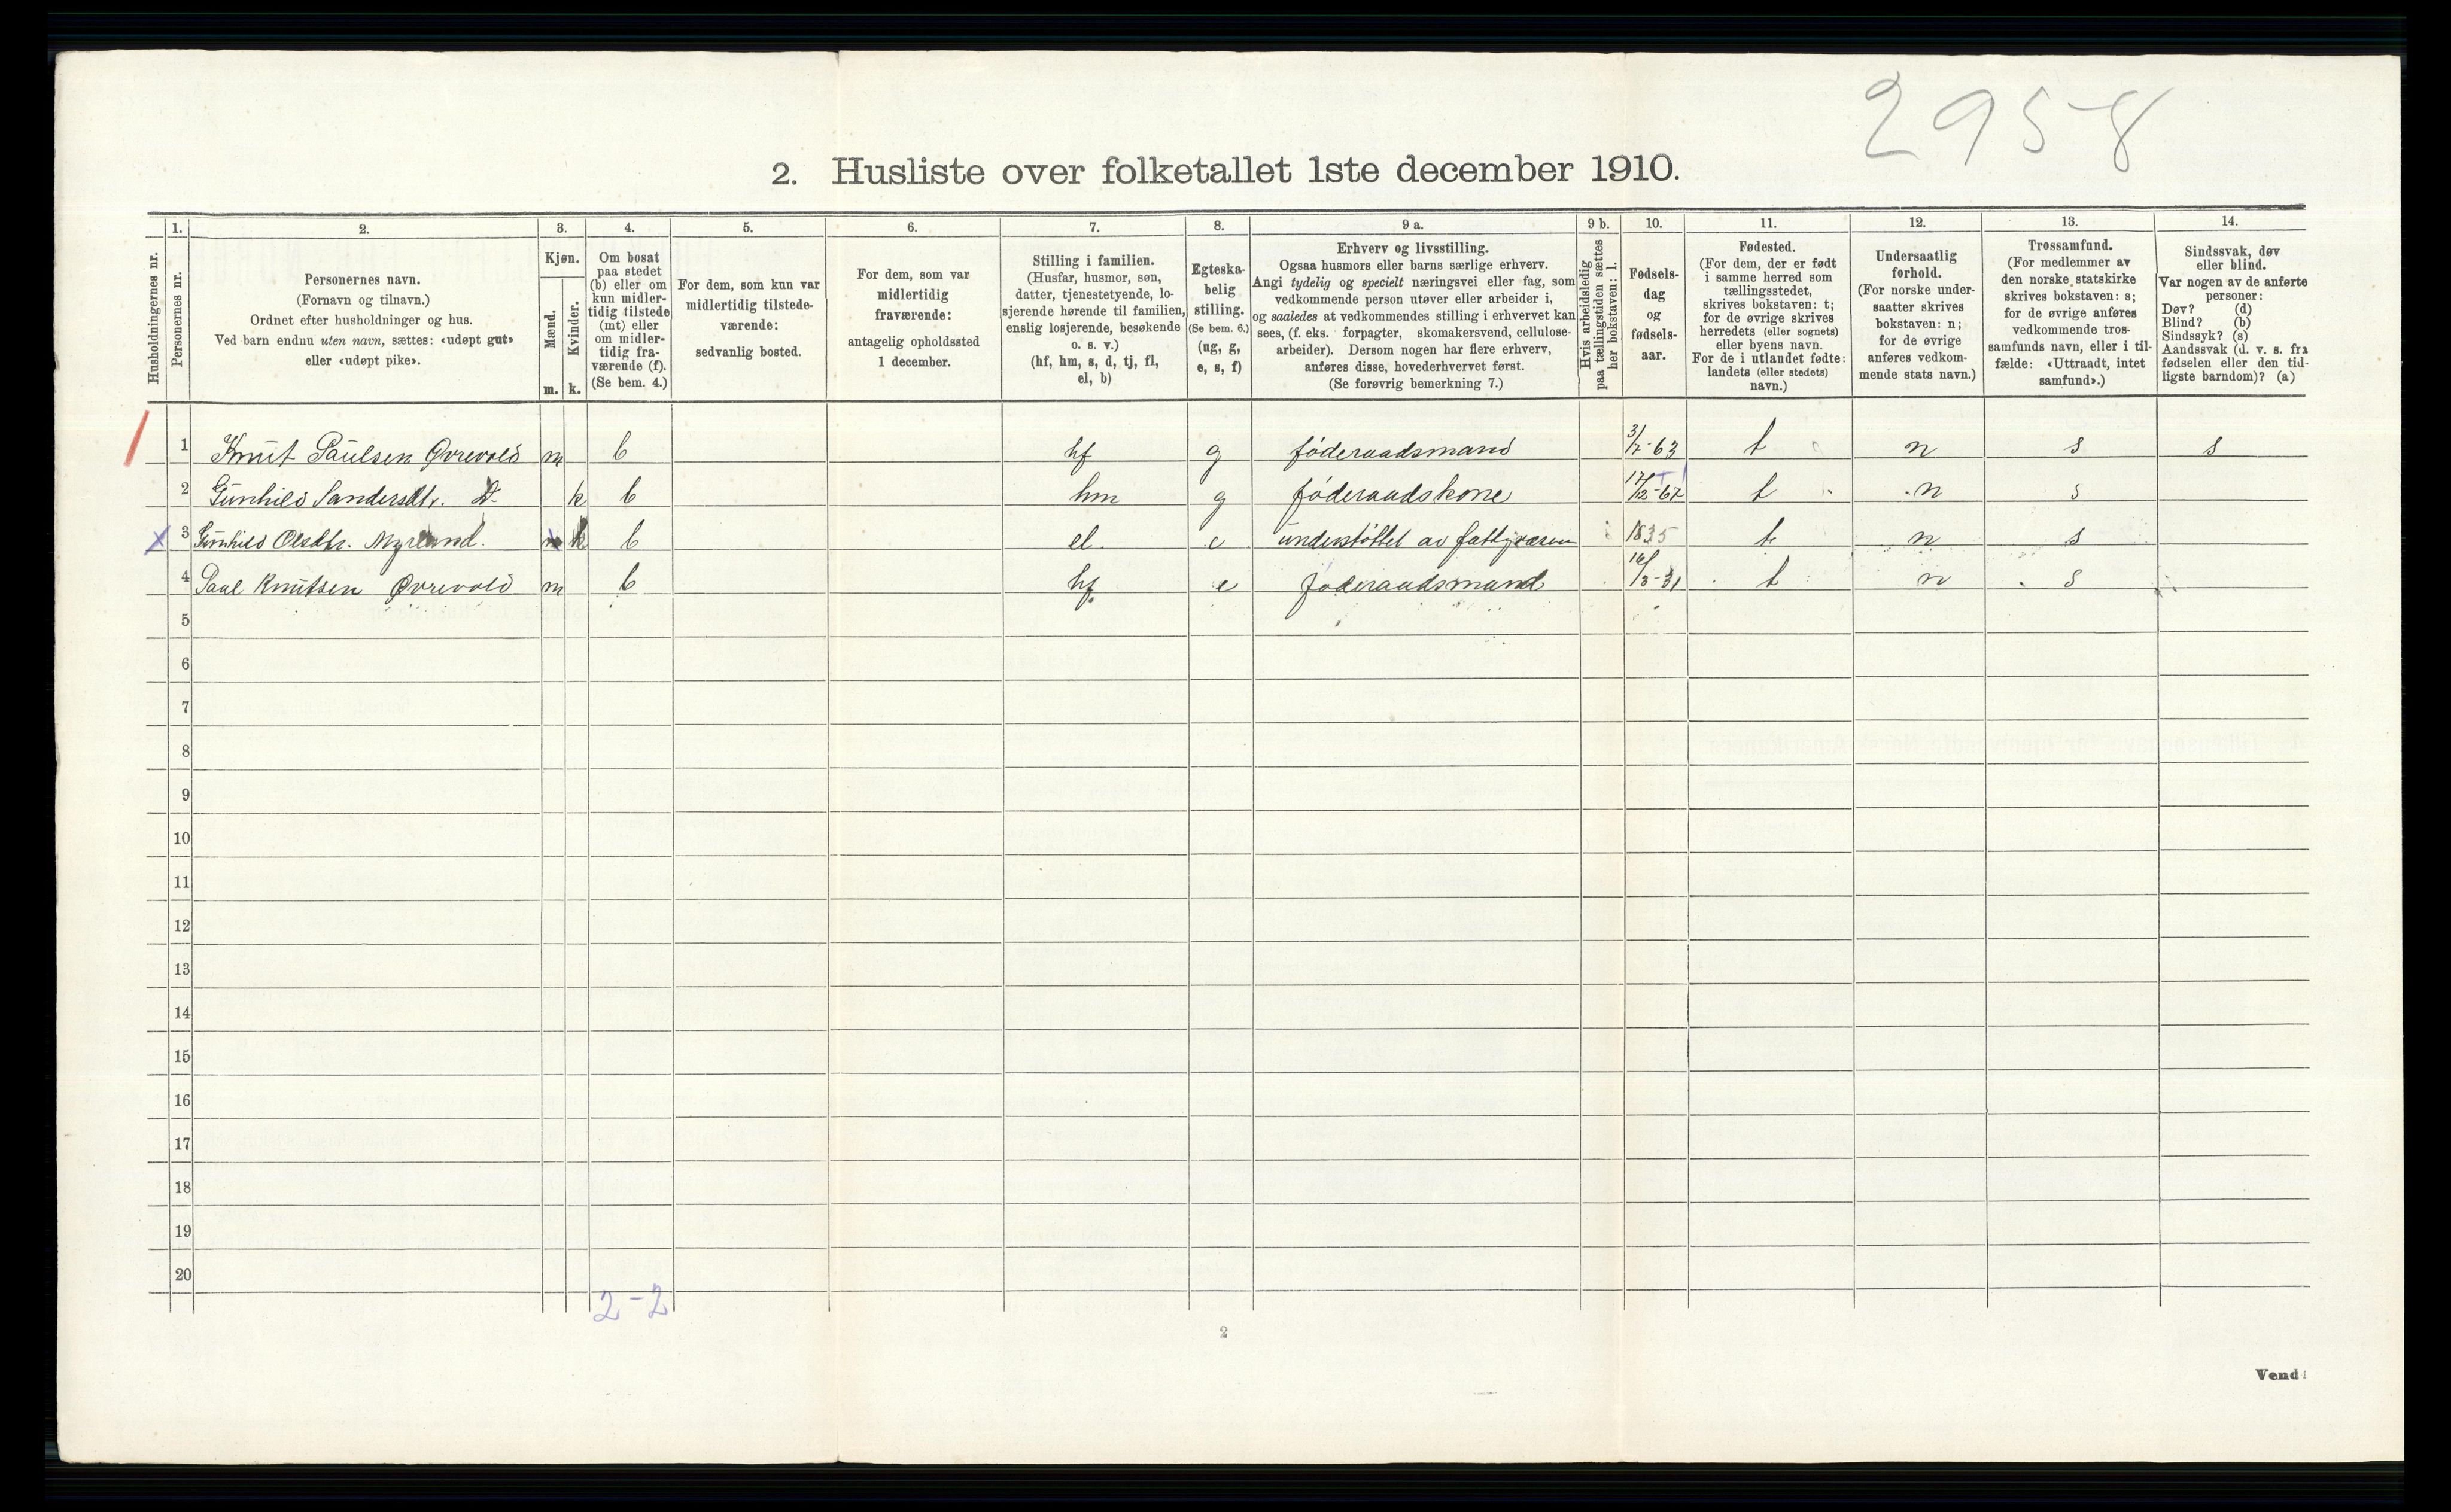 2958
2. Husliste over folketallet 1ste december 1910.
Husholdningernes nr.
1.
Personernes nr.
2.
Personernes navn.
(Fornavn og tilnavn.)
Ordnet efter husholdninger og hus.
Ved barn endnu uten navn, sættes: «udøpt gut»
eller «udøpt pike».
3.
Kjøn.
Mænd.
m.
Kvinder.
k.
4.
Om bosat
paa stedet
(b) eller om
kun midler-
tidig tilstede
(mt) eller
om midler-
tidig fra-
værende (f).
(Se bem. 4.)
5.
For dem, som kun var
midlertidig tilstede-
værende:
sedvanlig bosted.
6.
For dem, som var
midlertidig
fraværende:
antagelig opholdssted
1 december.
7.
Stilling i familien.
(Husfar, husmor, søn,
datter, tjenestetyende, lo-
sjerende hørende til familien,
enslig losjerende, besøkende
o. s. v.)
(hf, hm, s, d, tj, fl,
el, b)
8.
Egteska-
belig
stilling.
(Se bem. 6.)
(ug, g,
e, s, f)
9 a.
Erhverv og livsstilling.
Ogsaa husmors eller barns særlige erhverv.
Angi tydelig og specielt næringsvei eller fag, som
vedkommende person utøver eller arbeider i,
og saaledes at vedkommendes stilling i erhvervet kan
sees, (f. eks. forpagter, skomakersvend, cellulose-
arbeider). Dersom nogen har flere erhverv,
anføres disse, hovederhvervet først.
(Se forøvrig bemerkning 7.)
9 b.
Hvis arbeidsledig
paa tællingstiden sættes
her bokstaven: l.
10.
Fødsels-
dag
og
fødsels-
aar.
11.
Fødested.
(For dem, der er født
i samme herred som
tællingsstedet,
skrives bokstaven: t;
for de øvrige skrives
herredets (eller sognets)
eller byens navn.
For de i utlandet fødte:
landets (eller stedets)
navn.)
12.
Undersaatlig
forhold.
(For norske under-
saatter skrives
bokstaven: n;
for de øvrige
anføres vedkom-
mende stats navn.)
13.
Trossamfund.
(For medlemmer av
den norske statskirke
skrives bokstaven: s;
for de øvrige anføres
vedkommende tros-
samfunds navn, eller i til-
fælde: «Uttraadt, intet
samfund».)
14.
Sindssvak, døv
eller blind.
Var nogen av de anførte
personer:
Døv? (d)
Blind? (b)
Sindssyk? (s)
Aandssvak (d. v. s. fra
fødselen eller den tid-
ligste barndom)? (a)
1 Knut Paulsen Øvrevold m b hf g føderaadsmand 3/7-63 t n s s
2 Gunhild Sandersdtr. k b hm g føderaadskone 17/2-67 t n s
3 Gunhild Olsdtr. Myrland. k b el. e understøttet av fattigvæsen 1835 t n s
4 Paul Knutsen Øvrevold m b hf. e føderaadsmand 16/3-31 t n s
5
6
7
8
9
10
11
12
13
14
15
16
17
18
19
20
2-2
2
Vend!